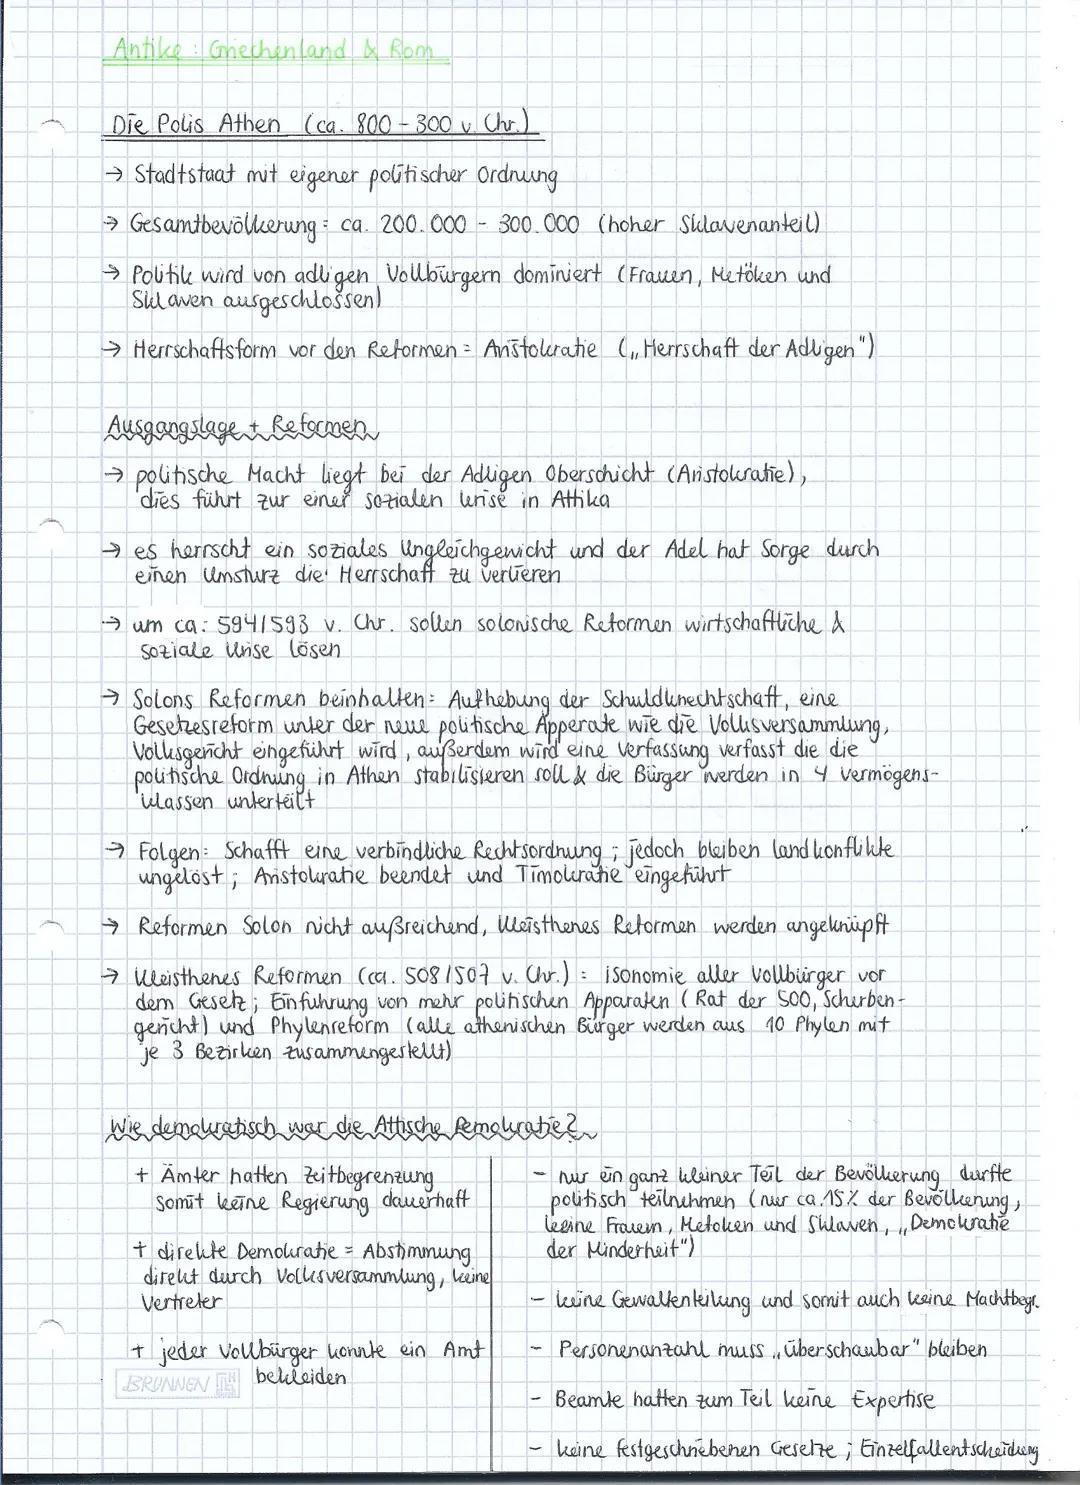 Antike : Griechenland & Rom
Die Polis Athen (ca. 800 - 300 v. Chr.)
→ Stadtstaat mit eigener politischer Ordnung
→ Gesamtbevölkerung : ca. 200.000 - 300.000 (hoher Sklavenanteil)
→ Politik wird von adligen Vollbürgern dominiert (Frauen, Metöken und
Sklaven ausgeschlossen)
→ Herrschaftsform vor den Reformen = Aristokratie („Herrschaft der Adligen")
Ausgangslage + Reformen
→ politische Macht liegt bei der Adligen Oberschicht (Aristokratie),
dies führt zur einer sozialen Krise in Attika
→ es herrscht ein soziales Ungleichgewicht und der Adel hat Sorge durch
einen Umsturz die Herrschaft zu verlieren
→ um ca. 594/593 v. Chr. sollen solonische Reformen wirtschaftliche &
soziale Krise lösen
→ Solons Reformen beinhalten: Aufhebung der Schuldknechtschaft, eine
Gesetzesreform unter der neue politische Apperate wie die Volksversammlung,
Volksgericht eingeführt wird, außerdem wird eine Verfassung verfasst die die
politische Ordnung in Athen stabilisieren soll & die Bürger werden in 4 Vermögens-
klassen unterteilt
→ Folgen: Schafft eine verbindliche Rechtsordnung ; jedoch bleiben Landkonflikte
ungelöst ; Aristokratie beendet und Timokratie eingeführt
→ Reformen Solon nicht außreichend, Kleisthenes Reformen werden angeknüpft
→ Kleisthenes Reformen (ca. 508/507 v. Chr.) : isonomie aller Vollbürger vor
dem Gesetz ; Einführung von mehr politischen Apparaten (Rat der 500, Scherben-
gericht) und Phylenreform (alle athenischen Bürger werden aus 10 Phylen mit
je 3 Bezirken zusammengestellt)
Wie demokratisch war die Attische Demokratie?
+ Ämter hatten Zeitbegrenzung
somit keine Regierung dauerhaft
+ direkte Demokratie = Abstimmung
direkt durch Volksversammlung, keine
Vertreter
+ jeder Vollbürger konnte ein Amt
bekleiden
BRUNNEN
- nur ein ganz kleiner Teil der Bevölkerung durfte
politisch teilnehmen (nur ca. 15% der Bevölkerung,
keine Frauen, Metöken und Sklaven, „Demokratie
der Minderheit")
- keine Gewaltenteilung und somit auch keine Machtbegr.
- Personenanzahl muss „überschaubar" bleiben
- Beamte hatten zum Teil keine Expertise
- keine festgeschriebenen Gesetze ; Einzelfallentscheidung